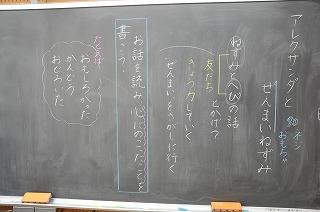 アレクサンダと
ぜんまいねずみ
ネジ
おもちゃ
ねずみとへびの話
とかげ
友だち
きょう力していく
ぜんまいをさがしに行く
お話を読み、心にのこったことを
書こう。
たとえば
おもしろかった
かんどう
おどろいた